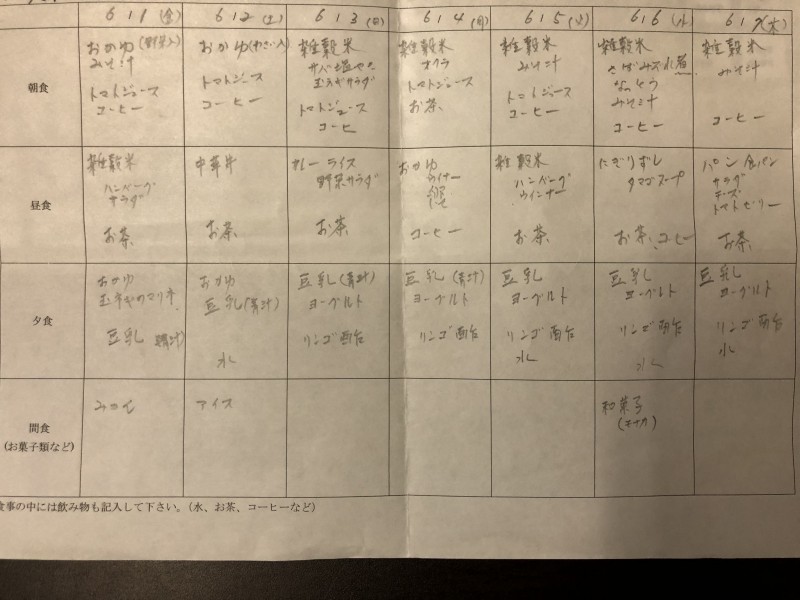 6 / 1 (金) 6 / 2 (土) 6 / 3 (日) 6 / 4 (月) 6 / 5 (火) 6 / 6 (水) 6 / 7 (木)
朝食
おかゆ (野菜入)
みそ汁
トマトジュース
コーヒー
おかゆ
トマトジュース
コーヒー
雑穀米
サバ塩やき
玉ネギサラダ
トマトジュース
コーヒー
雑穀米
オクラ
トマトジュース
お茶
雑穀米
みそ汁
トマトジュース
コーヒー
雑穀米
さばみぞれ煮
なっとう
みそ汁
コーヒー
雑穀米
みそ汁
コーヒー
昼食
雑穀米
ハンバーグ
サラダ
お茶
中華丼
お茶
カレーライス
野菜サラダ
お茶
おかゆ
ウィナー
コーヒー
雑穀米
ハンバーグ
ウインナー
お茶
にぎりずし
タマゴスープ
お茶、コーヒー
パン 食パン
サラダ
チーズ
トマトゼリー
お茶
夕食
おかゆ
玉ネギのマリネ
豆乳 (青汁)
おかゆ
豆乳 (青汁)
水
豆乳 (青汁)
ヨーグルト
リンゴ酢
豆乳 (青汁)
ヨーグルト
リンゴ酢
豆乳
ヨーグルト
リンゴ酢
水
豆乳
ヨーグルト
リンゴ酢
水
豆乳
ヨーグルト
リンゴ酢
水
間食
(お菓子類など)
みかん
アイス
和菓子
(モナカ)
食事の中には飲み物も記入して下さい。(水、お茶、コーヒーなど)